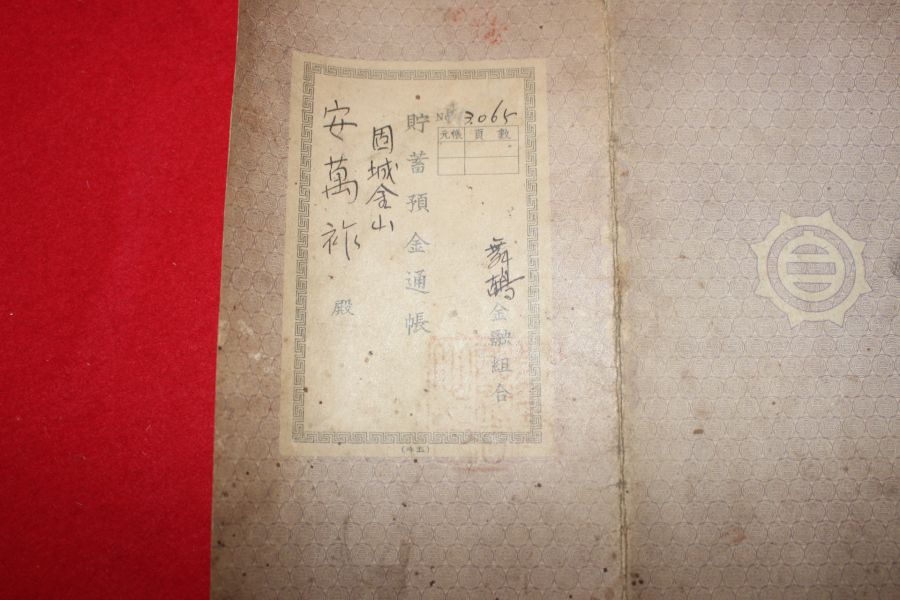 No 3.065
元帳 頁數
舞鶴金融組合
貯蓄預金通帳
固城金山
安萬祚 殿